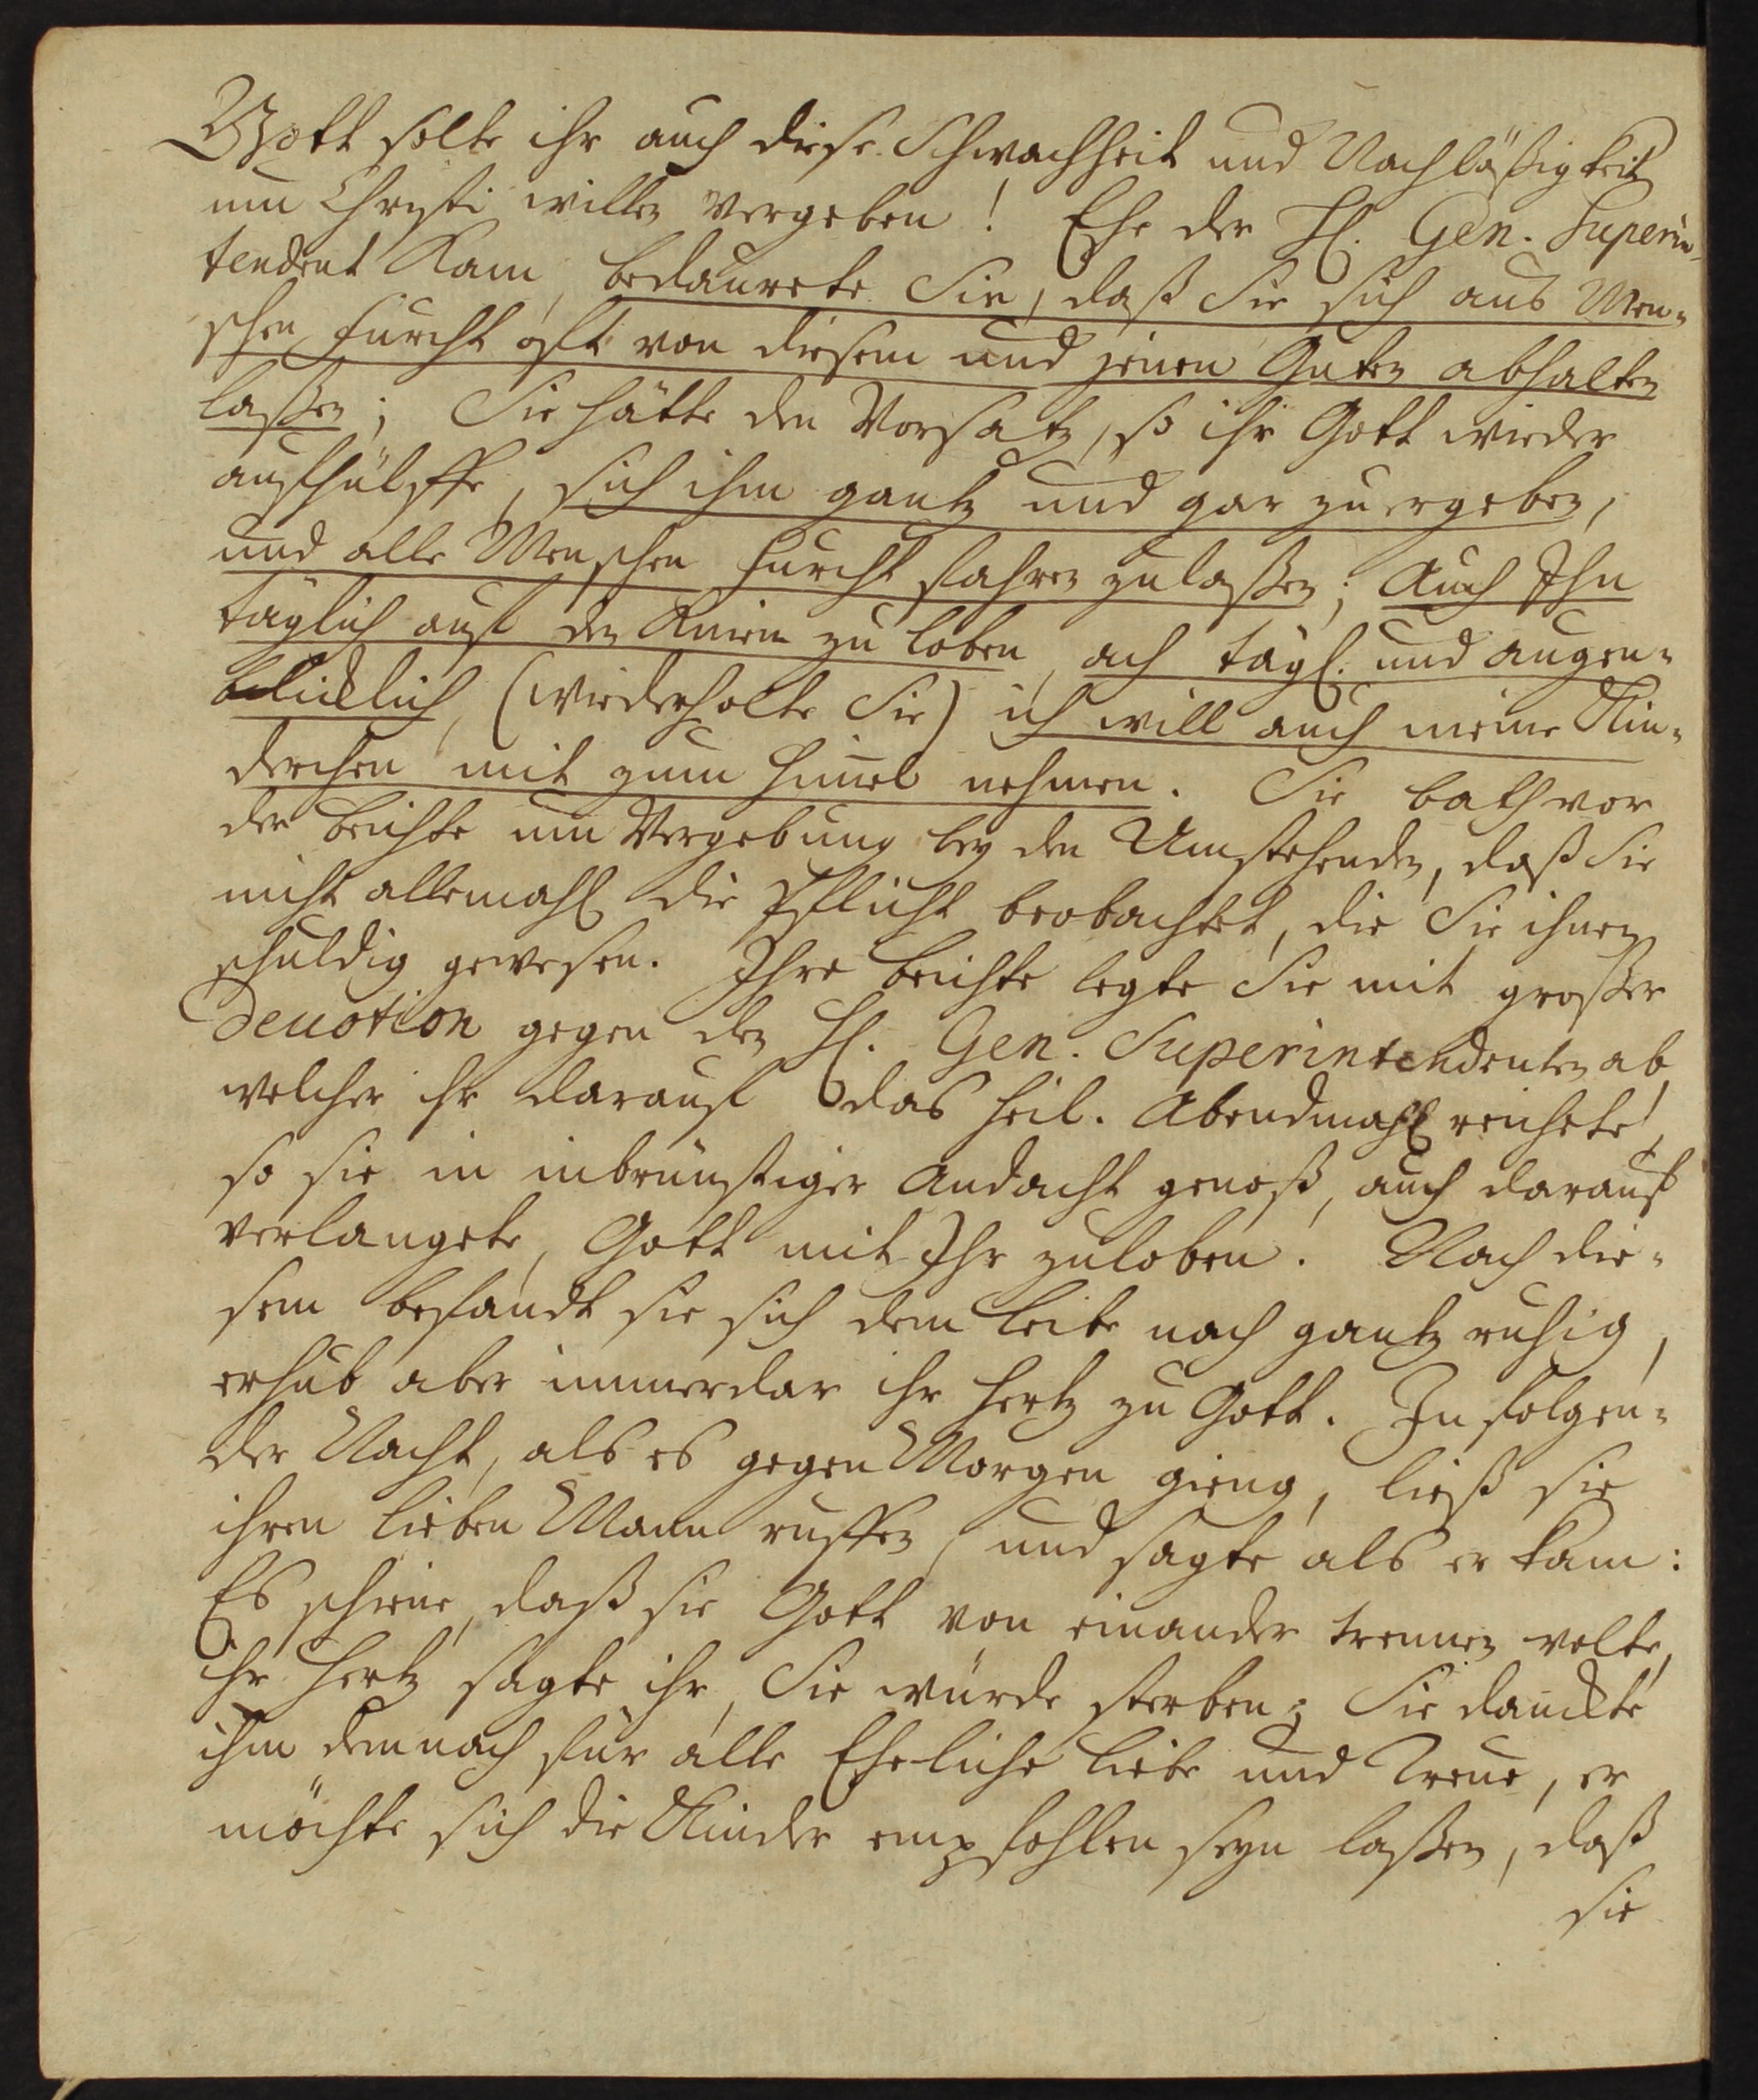 Gott solte ihr auch diese Schwachheit und Nachläßigkeit
um Christi willen vergeben! Ehe der H. Gen. Superin-
tendent kam, bedaurete Sie, daß Sie sich aus Men-
schen Furcht oft von diesem und jenen Guten abhalten
laßen; Sie hätte den Vorsatz, so ihr Gott wieder
aufhülffe, sich ihm gantz und gar zu ergeben,
und alle Menschen Furcht fahren zulaßen; Auch Ihn
täglich auf den Knien zu loben, ach tägl. und augen-
blicklich, (wiederholte Sie) ich will auch meine Kin-
derchen mit zum Him̄el nehmen. Sie bath vor
der Beichte um Vergebung bey den Umstehenden, daß Sie
nicht allemahl die Pflicht beobachtet, die Sie ihnen
schuldig gewesen. Ihre Beichte legte Sie mit großer
Devotion gegen den H. Gen. Superintendenten ab,
welcher ihr darauf das heil. Abendmahl reichete,
so sie in inbrünstiger Andacht genoß, auch darauf
verlangete, Gott mit Ihr zuloben. Nach die-
sem befandt sie sich dem Leibe nach gantz ruhig,
erhub aber immerdar ihr Hertz zu Gott. In folgen-
der Nacht, als es gegen Morgen gieng, ließ sie
ihren lieben Mann ruffen, und sagte als er kam:
Es schiene, daß sie Gott von einander trennen wolte,
ihr Hertz sagte ihr, Sie würde sterben; Sie danckte
ihm demnach für alle Eheliche Liebe und Treue, er
möchte sich die Kinder empfohlen seyn laßen, daß
sie